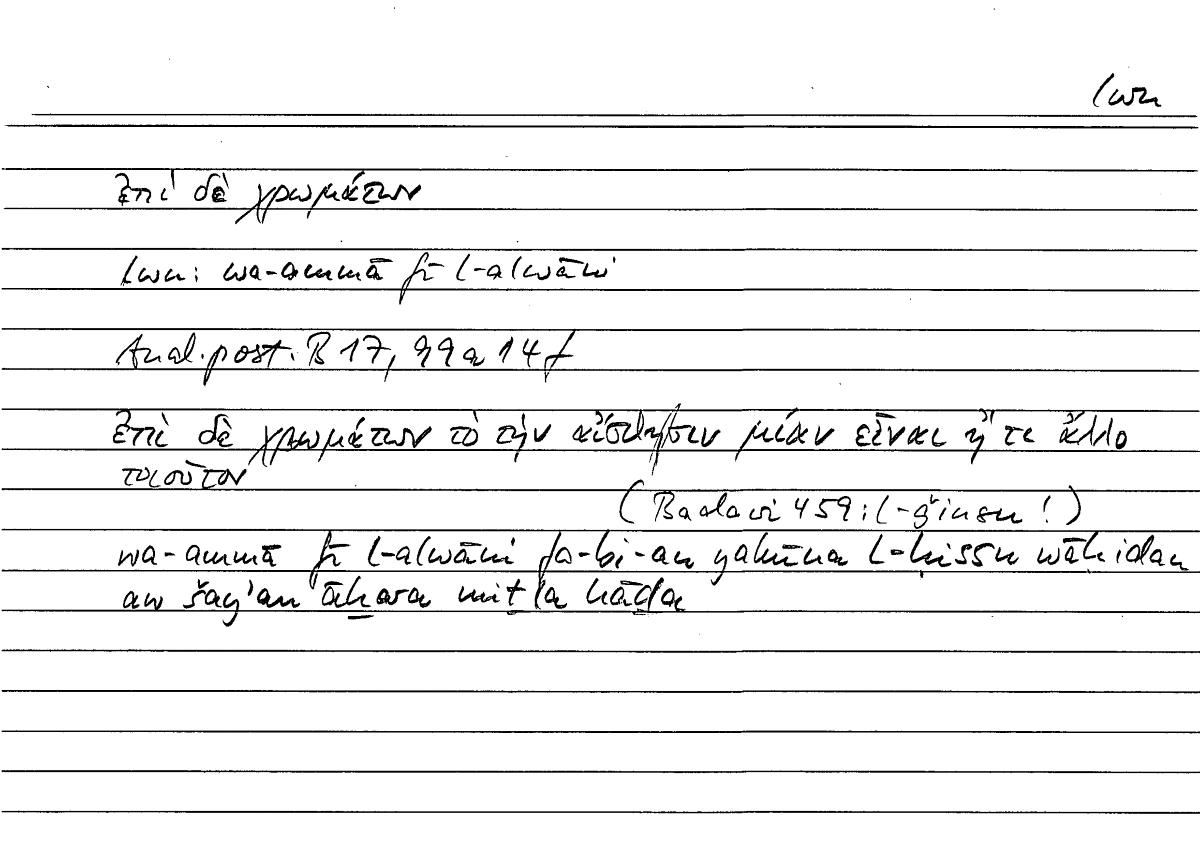 lwn
ἐπὶ δὲ χρωμάτων
lwn: wa-ammā fī l-alwāni
Anal. post. B 17, 99a 14 f
ἐπὶ δὲ χρωμάτων τὸ τὴν αἴσθησιν μίαν εἶναι ἤ τι ἄλλο
τοιοῦτον
(Badawi 459: l-ǧinsu!)
wa-ammā fī l-alwāni fa-bi-an yakūna l-ḥissu wāḥidan
aw šay'an āḫara miṯla hāḏa